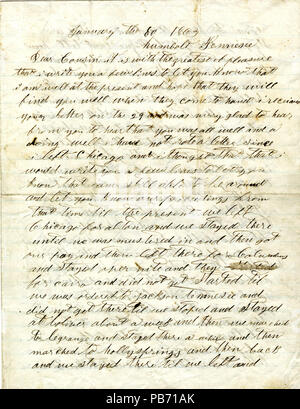 January the 30 1863
Humbolt Tennesee
Dear Cousin it is with the greatest of pleasure
that i write you a few lines to let you know that
i am well at the present and hope that they will
find you well when they come to hand i recieved
your letter on the 29 and was very glad to hear
from you to hear that you was all well and a
doing well i have not wrote a letter since
i left Chicago and i thought that i
would write you a few lines to let you
know that i am still able to be around
and let you know our from
that time till the present we left
Chicago for alton and we stayed there
until we was mustered in and then got
our pay and then left there for Columbus
and stayed over nite and they
for cairo and did not get started til
we was ordered to Jackson Tennesie and
did not get there til we stoped and stayed
at boliver about a week and then we marched
to Lagrange and stayed there a week and then
marched to holly springs and then back
and we stayed there til we left and
alamy
Image ID: PB71AK
www.alamy.com